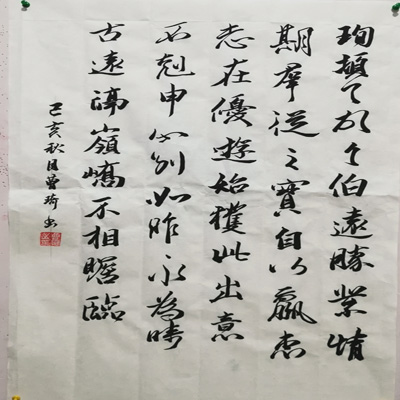 珣頓首頓首伯遠勝業情
期羣從之寶自以羸患
志在優遊始獲此出意
不剋申分別如昨永為疇
古遠隔嶺嶠不相瞻臨
己亥秋月書